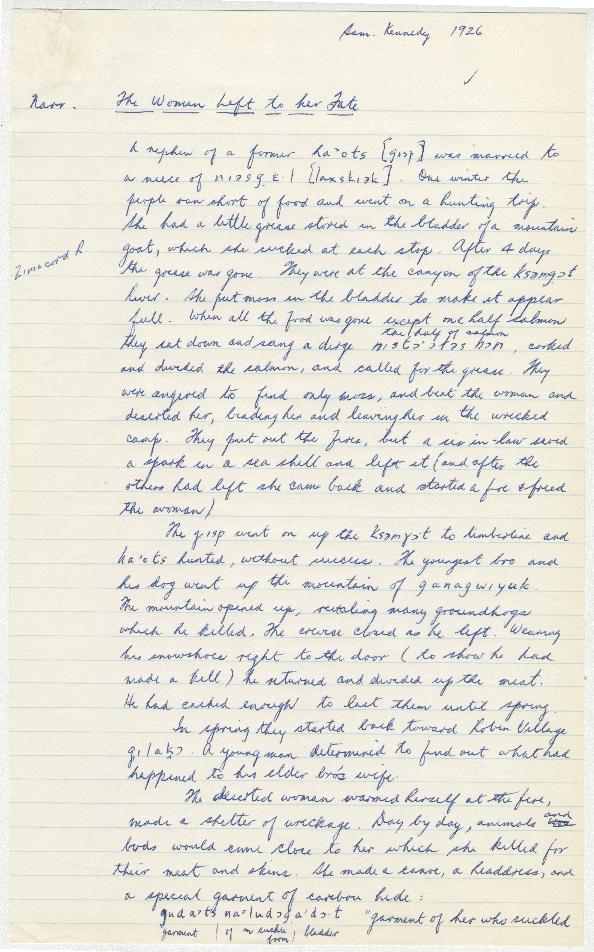 Sam. Kennedy 1926
Narr. The Woman Left to her Fate
A nephew of a former ha'ots [gisp] was married to
a niece of [laxskiək]. One winter the
people ran short of food and went on a hunting trip.
She had a little grease stored in the bladder of a mountain
goat, which she sucked at each stop. After 4 days
the grease was gone. They were at the canyon of the
River. She put moss in the bladder to make it appear
full. When all the food was gone except one half salmon
tail half of salmon
they sat down and sang a dirge , cooked
and divided the salmon, and called for the grease. They
were angered to find only moss, and beat the woman and
deserted her, leaving her in the wrecked
camp. They put out the fires, but a sis-in-law saved
a spark in a sea shell and left it (and after the
others had left she came back and started a fire & freed
the woman)
The gisp went on up the to timberline and
ha'ots hunted, without success. The youngest bro and
his dog went up the mountain of ganagwiyuk.
The mountain opened up, revealing many groundhogs
which he killed. The crevice closed as he left. Wearing
his snowshoes right to the door (to show he had
made a kill) he returned and divided up the meat.
He had cached enough to last them until spring.
In spring they started back toward Robin Village
. A young man determined to find out what had
happened to his elder bro's wife.
The deserted woman warmed herself at the fire,
made a shelter of wreckage. Day by day, animals and
birds would come close to her which she killed for
their meat and skins. She made a canoe, a headdress, and
a special garment of caribou hide:
"garment of her who suckled
garment | of | suckle from | bladder